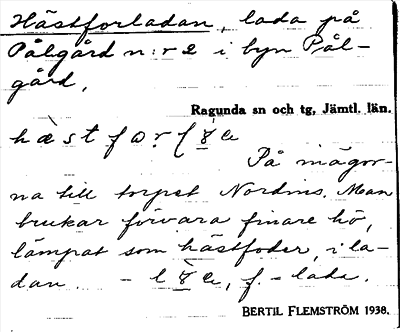 Hästforladan, lada på
Pålgård n:r 2 i byn Pål-
gård.
Ragunda sn och tg, Jämtl. län.
På mägor-
na till torpet Nordins. Man
brukar förvara finare hö,
lämpat som hästfoder, i la-
dan. - f. - lada.
BERTIL FLEMSTRÖM 1938.